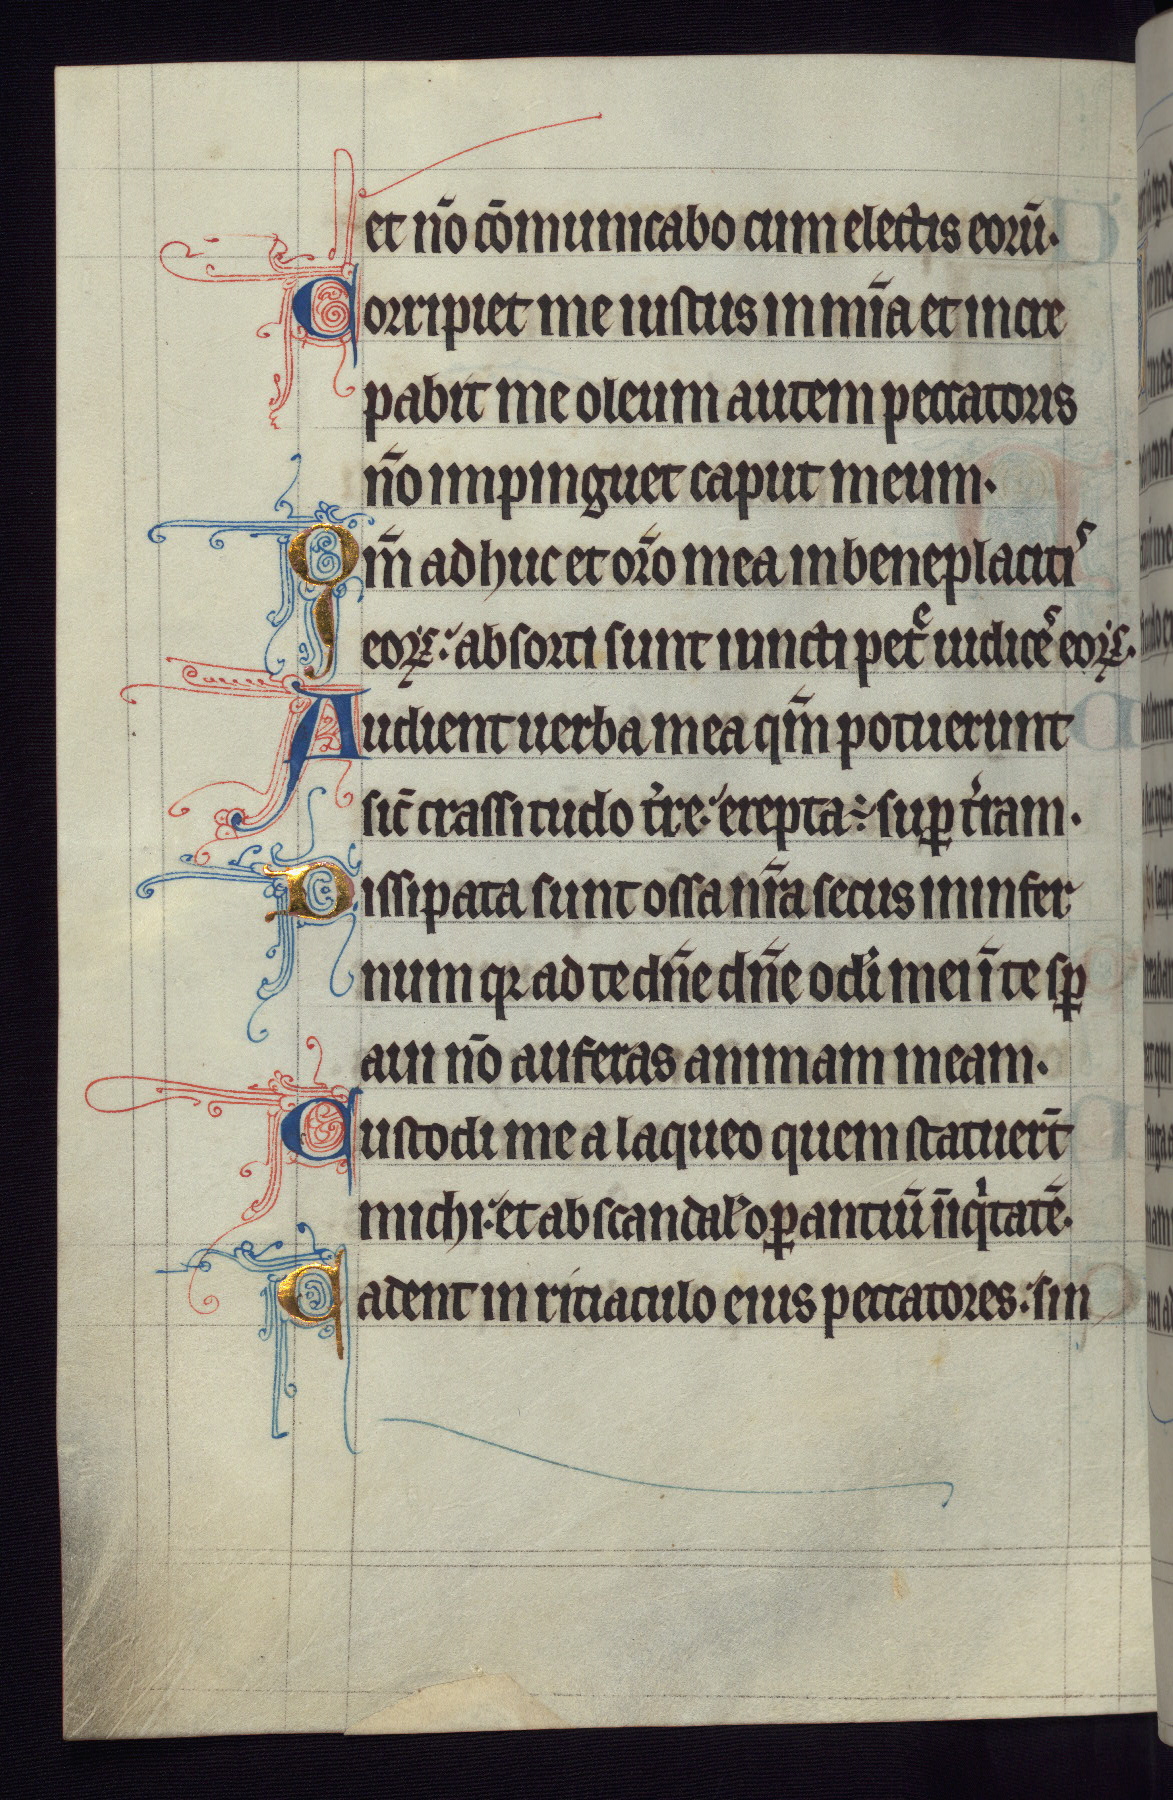 et nō cōmunicabo cum electis eorū.
Corripiet me iustus in mīa et incre
pabit me oleum autem peccatoris
nō impinguet caput meum.
Qm̄ adhuc et orō mea in beneplacitis
eoꝝ: absorti sunt iuncti petͤ iudicēs eoꝝ.
Audient uerba mea qm̄ potuerunt
sic̄ crassitudo t̓re: erepta ÷ suꝑ t̓ram.
Dissipata sunt ossa nr̄a secus in infer
num qꝛ ad te dn̄e dn̄e oc̄li mei ī te sꝑ
aui nō auferas animam meam.
Custodi me a laqueo quem statuer̄t
michi: et ab scandal̓ oꝑantiū īiq̓tatē.
Cadent in reciaculo eius peccatores: sin